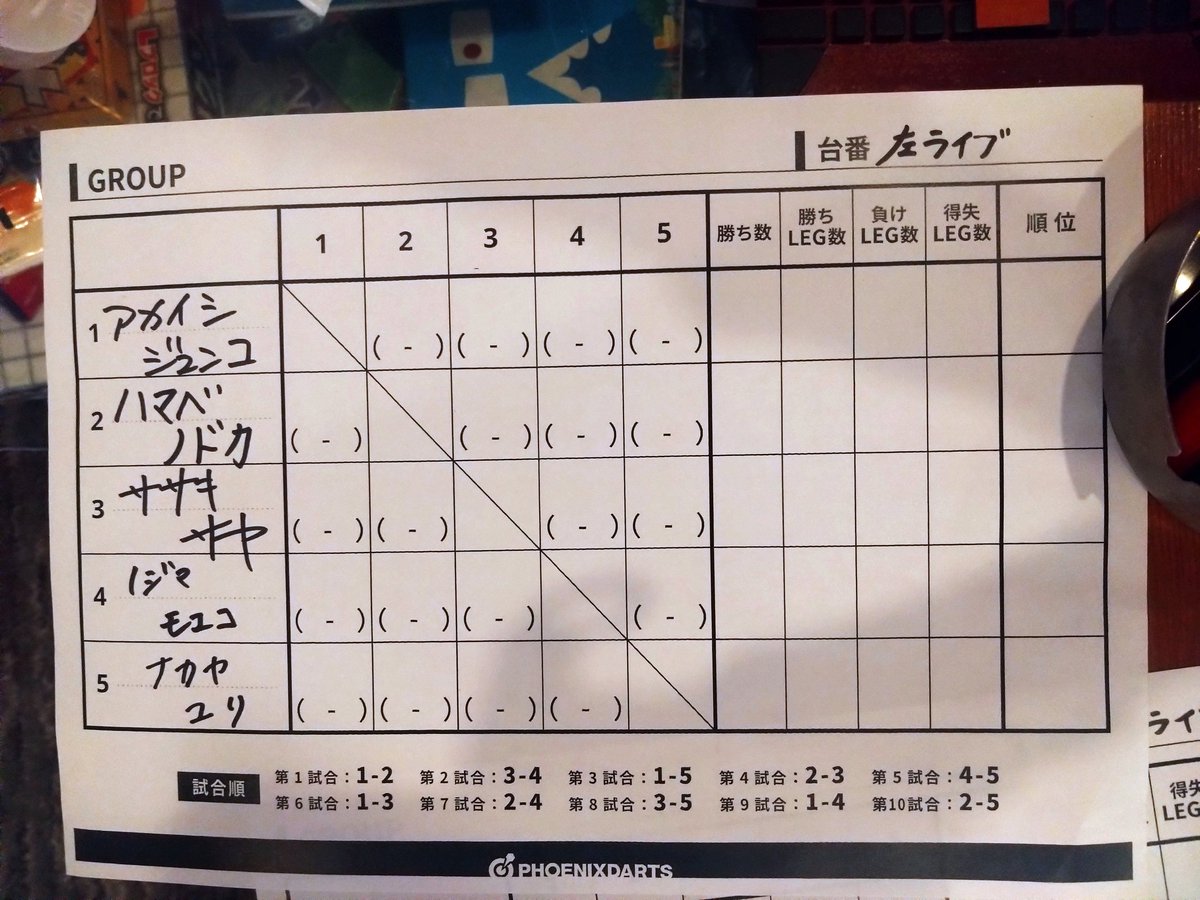 GROUP
台番 左ライブ
1 2 3 4 5 勝ち数 勝ちLEG数 負けLEG数 得失LEG数 順位
1 アカイシ
ジュンコ
( - ) ( - ) ( - ) ( - )
2 ハマベ
ノドカ
( - ) ( - ) ( - ) ( - )
3 ササキ
サヤ
( - ) ( - ) ( - ) ( - )
4 ノジマ
モユコ
( - ) ( - ) ( - ) ( - )
5 ナカヤ
ユリ
( - ) ( - ) ( - ) ( - )
試合順
第1試合：1-2 第2試合：3-4 第3試合：1-5 第4試合：2-3 第5試合：4-5
第6試合：1-3 第7試合：2-4 第8試合：3-5 第9試合：1-4 第10試合：2-5
PHOENIXDARTS
ライ
得失
LEG